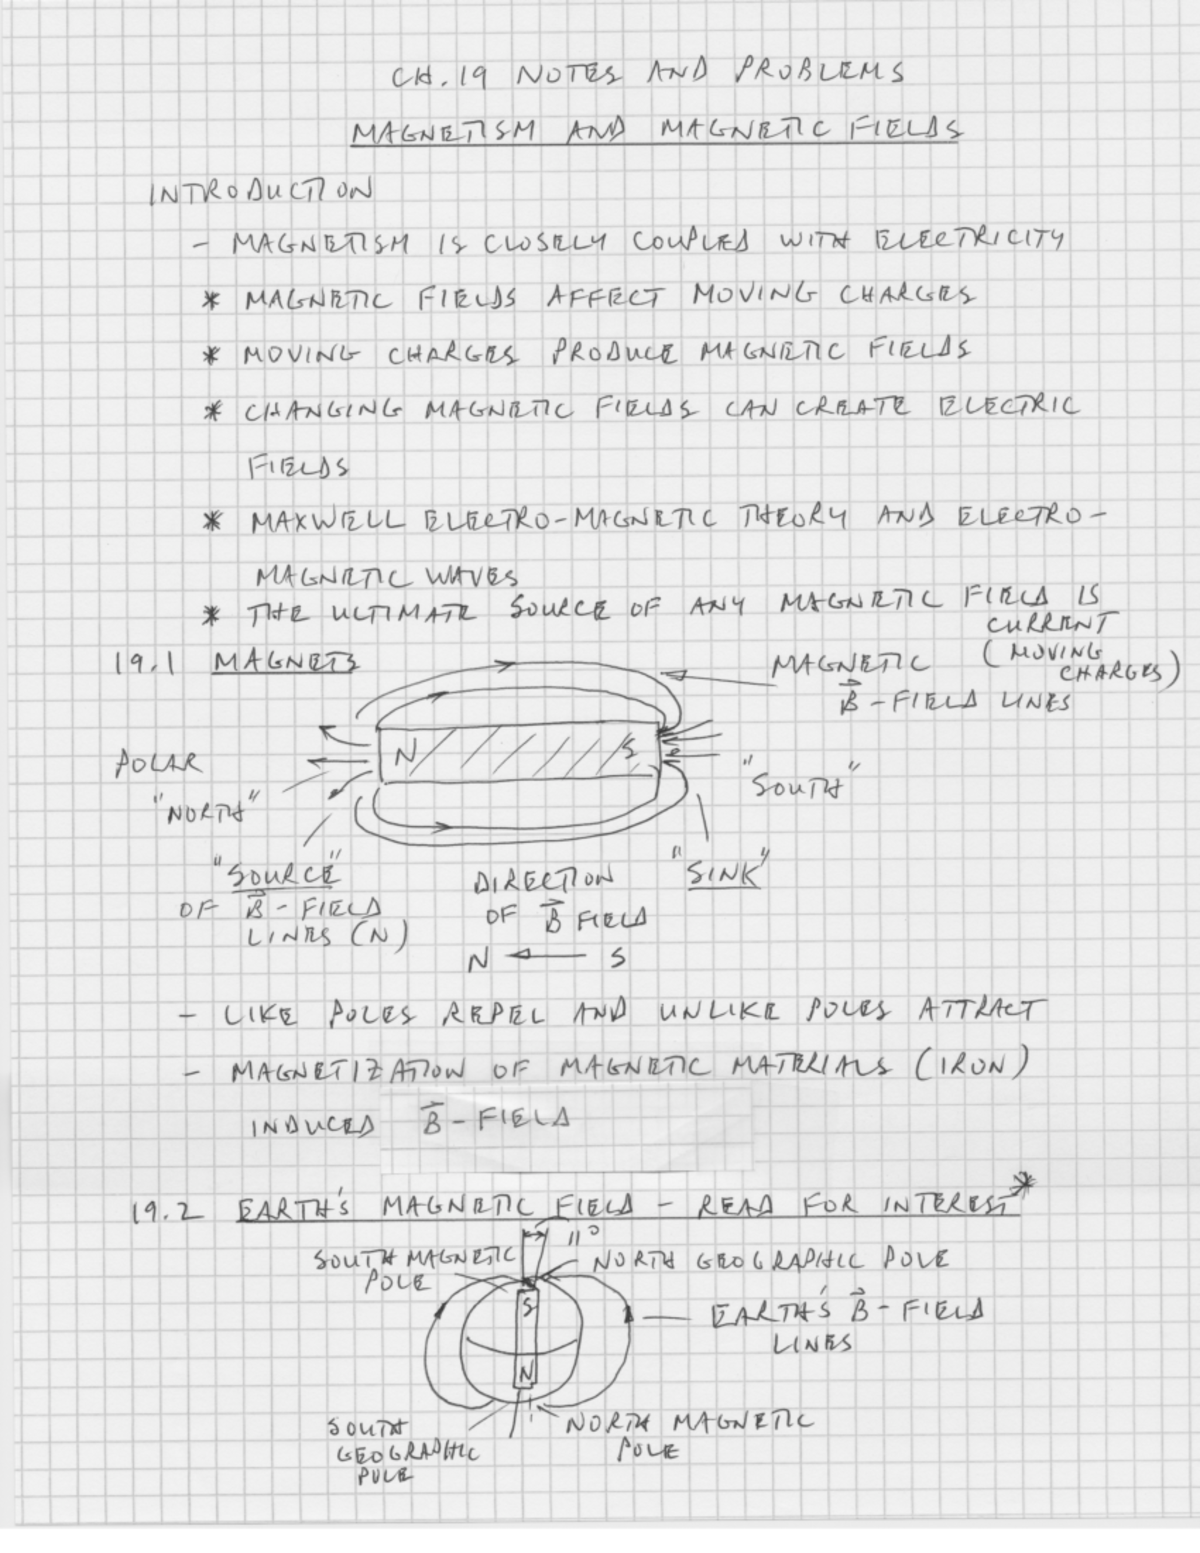 CH. 19 NOTES AND PROBLEMS
MAGNETISM AND MAGNETIC FIELDS
INTRODUCTION
- MAGNETISM IS CLOSELY COUPLED WITH ELECTRICITY
* MAGNETIC FIELDS AFFECT MOVING CHARGES
* MOVING CHARGES PRODUCE MAGNETIC FIELDS
* CHANGING MAGNETIC FIELDS CAN CREATE ELECTRIC
FIELDS
* MAXWELL ELECTRO-MAGNETIC THEORY AND ELECTRO-
MAGNETIC WAVES
* THE ULTIMATE SOURCE OF ANY MAGNETIC FIELD IS
CURRENT
(MOVING
CHARGES)
19.1 MAGNETS
MAGNETIC
B⃗ - FIELD LINES
N
S
POLAR
"NORTH"
"SOUTH"
"SOURCE"
OF B⃗ - FIELD
LINES (N)
DIRECTION
OF B⃗ FIELD
N ← S
"SINK"
- LIKE POLES REPEL AND UNLIKE POLES ATTRACT
- MAGNETIZATION OF MAGNETIC MATERIALS (IRON)
INDUCED B⃗ - FIELD
19.2 EARTH'S MAGNETIC FIELD - READ FOR INTEREST*
11°
SOUTH MAGNETIC
POLE
NORTH GEOGRAPHIC POLE
S
N
EARTH'S B⃗ - FIELD
LINES
SOUTH
GEOGRAPHIC
POLE
NORTH MAGNETIC
POLE